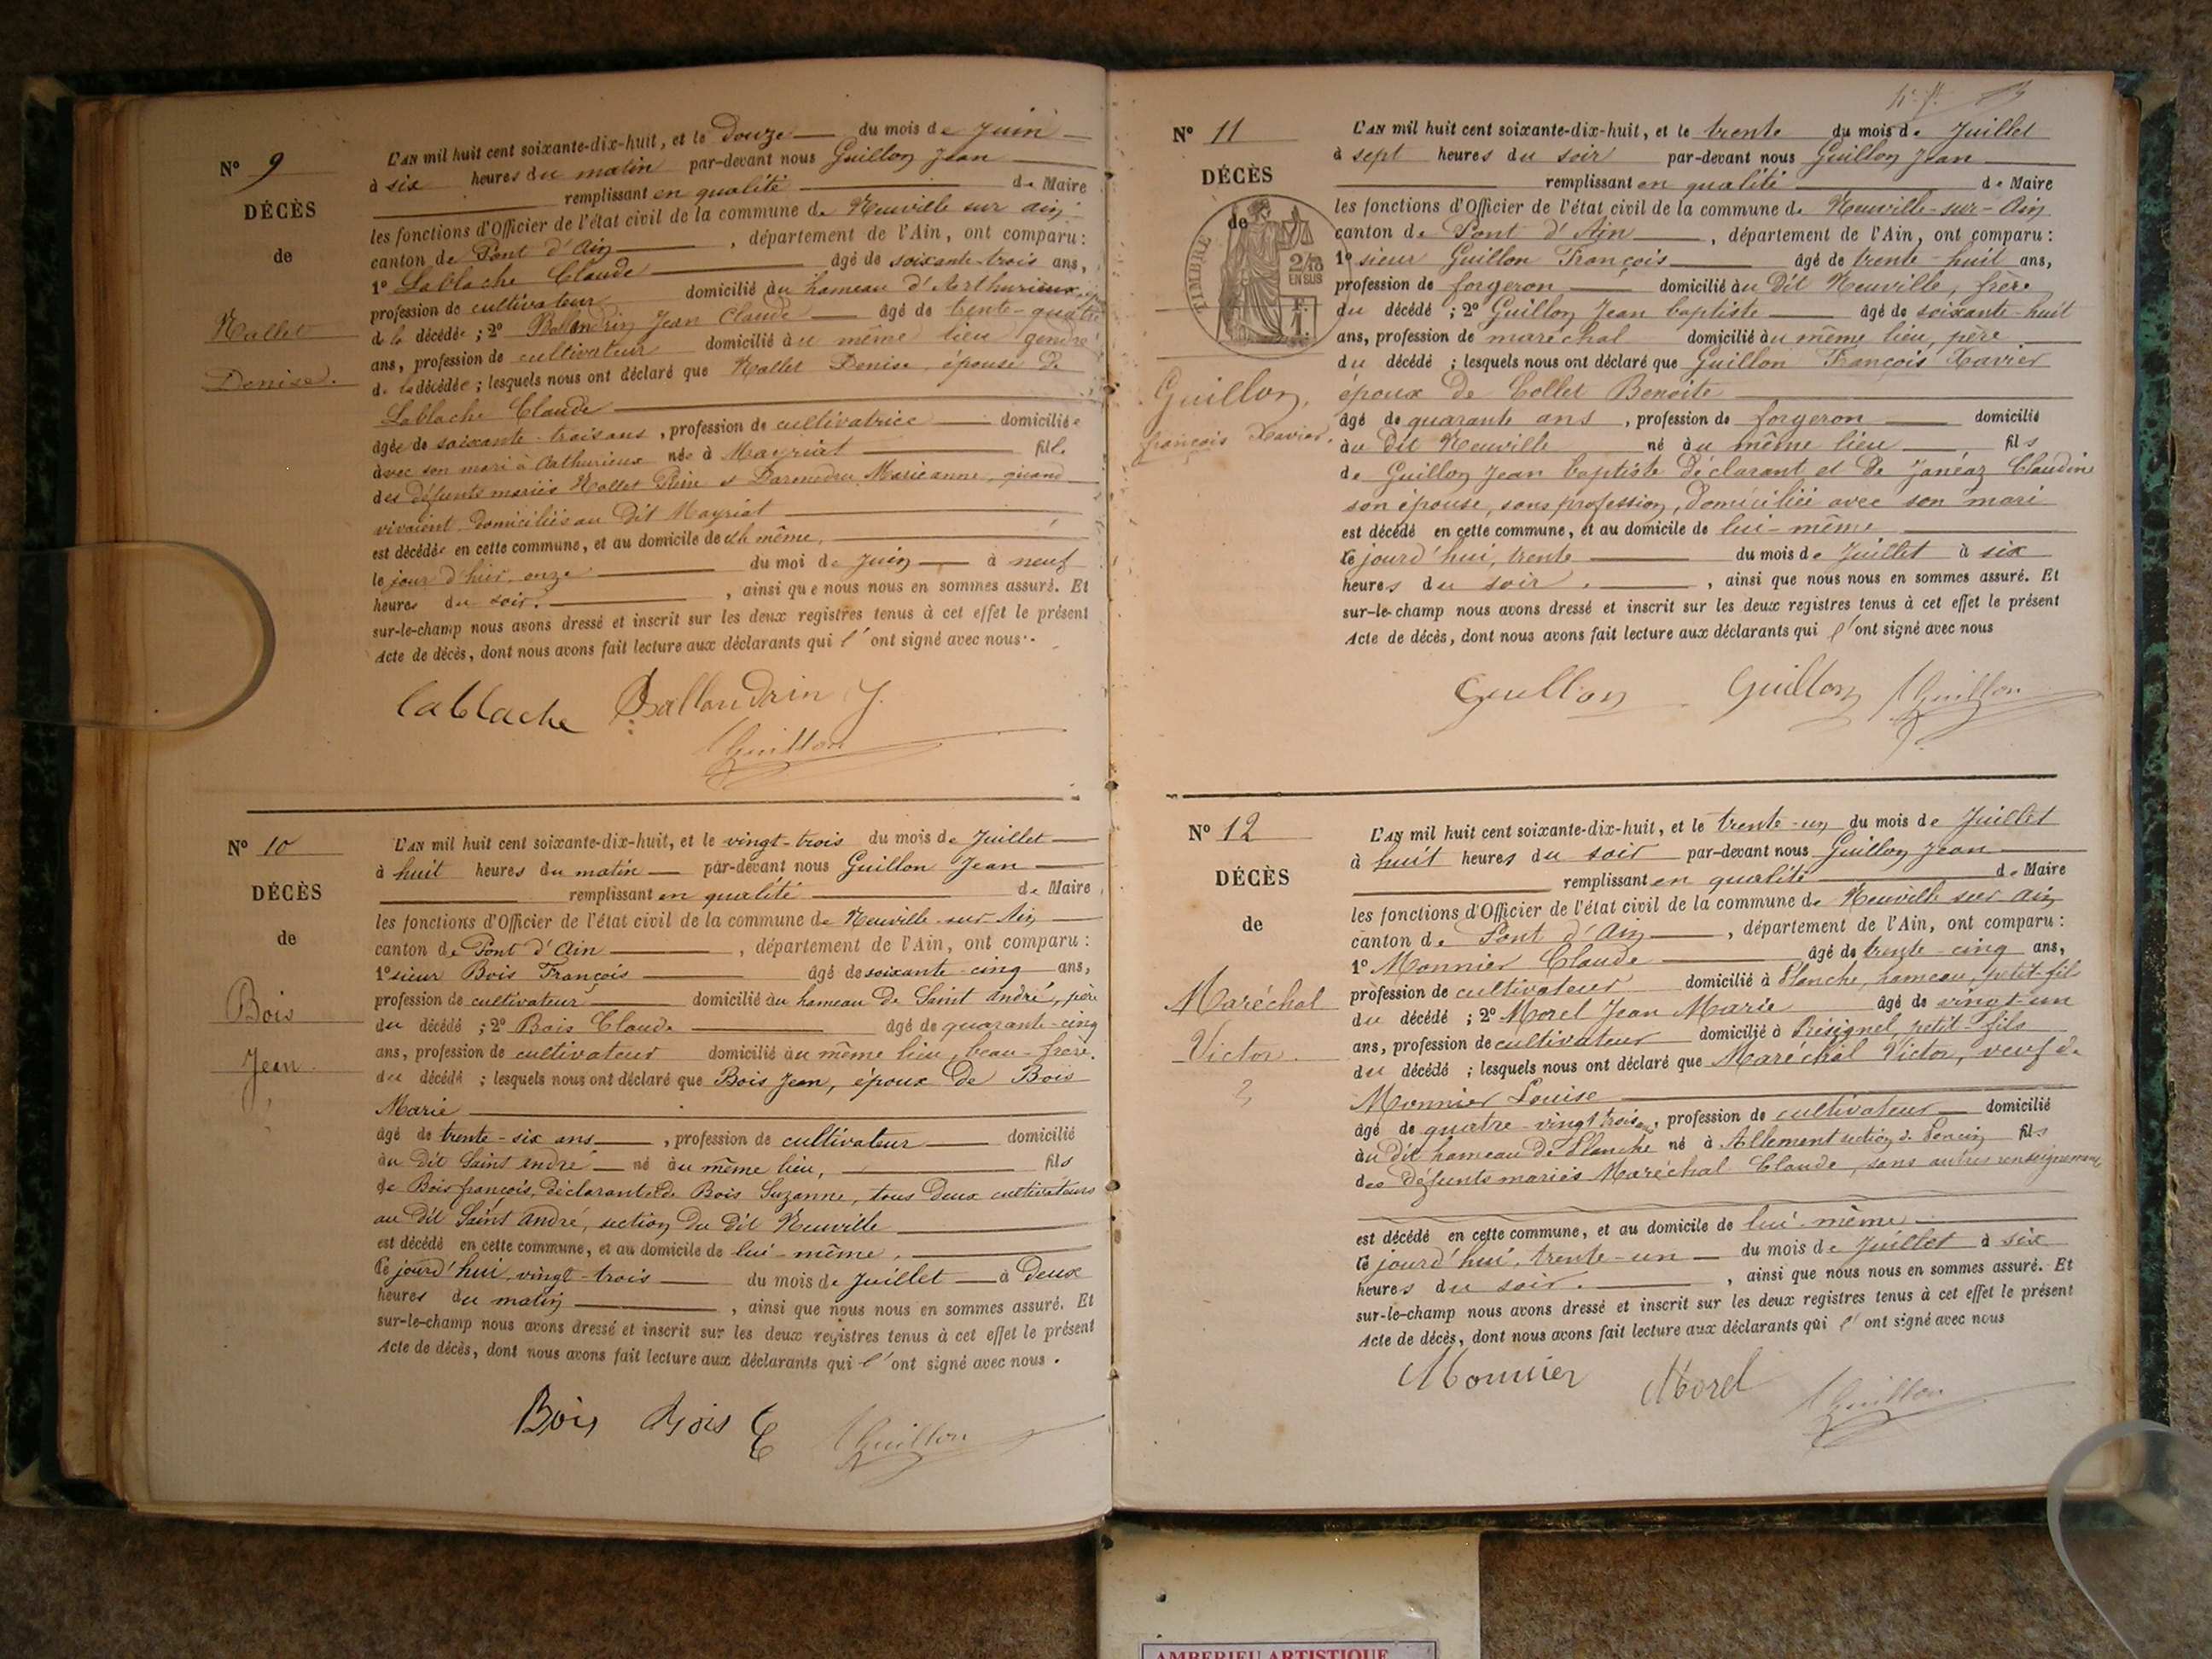 Nº 9
DÉCÈS
de
Nallet
Denise.
L'AN mil huit cent soixante-dix-huit, et le Douze du mois de Juin
à six heures du matin par-devant nous Guillon Jean
remplissant en qualité de Maire
les fonctions d'Officier de l'état civil de la commune de Neuville sur ain
canton de Pont d'Ain, département de l'Ain, ont comparu:
1º Lablache Claude âgé de soixante-trois ans,
profession de cultivateur domicilié au hameau d'Arthurieux,
de la décédée; 2º Balandrin Jean Claude âgé de trente-quatre
ans, profession de cultivateur domicilié au même lieu gendre
de la décédée; lesquels nous ont déclaré que Nallet Denise, épouse de
Lablache Claude
âgée de soixante-trois ans, profession de cultivatrice domiciliée
avec son mari à Arthurieux née à Mayriat fille
des défunts mariés Nallet Pierre et Marieanne, quand
vivaient domiciliés au dit Mayriat
est décédée en cette commune, et au domicile de elle même,
le jour d'hier, onze du moi de Juin à neuf
heures du soir., ainsi que nous nous en sommes assuré. Et
sur-le-champ nous avons dressé et inscrit sur les deux registres tenus à cet effet le présent
Acte de décès, dont nous avons fait lecture aux déclarants qui l'ont signé avec nous.
Lablache Ballandrin J.
Guillon
Nº 10
DÉCÈS
de
Bois
Jean
L'AN mil huit cent soixante-dix-huit, et le vingt-trois du mois de Juillet
à huit heures du matin par-devant nous Guillon Jean
remplissant en qualité de Maire
les fonctions d'Officier de l'état civil de la commune de Neuville-sur-Ain
canton de Pont d'Ain, département de l'Ain, ont comparu:
1º sieur Bois François âgé de soixante-cinq ans,
profession de cultivateur domicilié au hameau de Saint André, père
du décédé; 2º Bois Claude âgé de quarante-cinq
ans, profession de cultivateur domicilié au même lieu, beau-frère
du décédé; lesquels nous ont déclaré que Bois Jean, époux de Bois
Marie
âgé de trente-six ans, profession de cultivateur domicilié
au dit Saint André né au même lieu, fils
de Bois françois, déclarant et de Bois Suzanne, tous deux cultivateurs
au dit Saint André, section du dit Neuville
est décédé en cette commune, et au domicile de lui-même.
Ce jourd'hui, vingt-trois du mois de Juillet à deux
heures du matin, ainsi que nous nous en sommes assuré. Et
sur-le-champ nous avons dressé et inscrit sur les deux registres tenus à cet effet le présent
Acte de décès, dont nous avons fait lecture aux déclarants qui l'ont signé avec nous.
Bois Bois C Guillon
Nº 11
DÉCÈS
de
TIMBRE
2/10
EN SUS
F.
1.
Guillon,
françois Xavier.
L'AN mil huit cent soixante-dix-huit, et le trente du mois de Juillet
à sept heures du soir par-devant nous Guillon Jean
remplissant en qualité de Maire
les fonctions d'Officier de l'état civil de la commune de Neuville-sur-Ain
canton de Pont d'Ain, département de l'Ain, ont comparu:
1º sieur Guillon François âgé de trente-huit ans,
profession de forgeron domicilié au Dit Neuville, frère
du décédé; 2º Guillon Jean baptiste âgé de soixante-huit
ans, profession de maréchal domicilié au même lieu, père
du décédé; lesquels nous ont déclaré que Guillon François Xavier
époux de Collet Benoite
âgé de quarante ans, profession de forgeron domicilié
au Dit Neuville né au même lieu fils
de Guillon Jean baptiste déclarant et de Janéaz Claudine
son épouse, sans profession, domiciliée avec son mari
est décédé en cette commune, et au domicile de lui-même
Ce jourd'hui, trente du mois de Juillet à six
heures du soir., ainsi que nous nous en sommes assuré. Et
sur-le-champ nous avons dressé et inscrit sur les deux registres tenus à cet effet le présent
Acte de décès, dont nous avons fait lecture aux déclarants qui l'ont signé avec nous
Guillon Guillon Guillon
Nº 12
DÉCÈS
de
Maréchal
Victor.
L'AN mil huit cent soixante-dix-huit, et le trente-un du mois de Juillet
à huit heures du soir par-devant nous Guillon Jean
remplissant en qualité de Maire
les fonctions d'Officier de l'état civil de la commune de Neuville sur Ain
canton de Pont d'Ain, département de l'Ain, ont comparu:
1º Monnier Claude âgé de trente-cinq ans,
profession de cultivateur domicilié à Planche, hameau, petit-fils
du décédé; 2º Morel Jean Marie âgé de vingt-un
ans, profession de cultivateur domicilié à Résignel, petit-fils
du décédé; lesquels nous ont déclaré que Maréchal Victor, veuf de
Monnier Louise
âgé de quatre-vingt trois ans, profession de cultivateur domicilié
au dit hameau de Planche né à Allement section de Poncin fils
des défunts mariés Maréchal Claude, sans autres renseignements
est décédé en cette commune, et au domicile de lui-même
Ce jourd'hui, trente-un du mois de Juillet à six
heures du soir., ainsi que nous nous en sommes assuré. Et
sur-le-champ nous avons dressé et inscrit sur les deux registres tenus à cet effet le présent
Acte de décès, dont nous avons fait lecture aux déclarants qui l'ont signé avec nous
Monnier Morel Guillon
AMBERIEU ARTISTIQUE